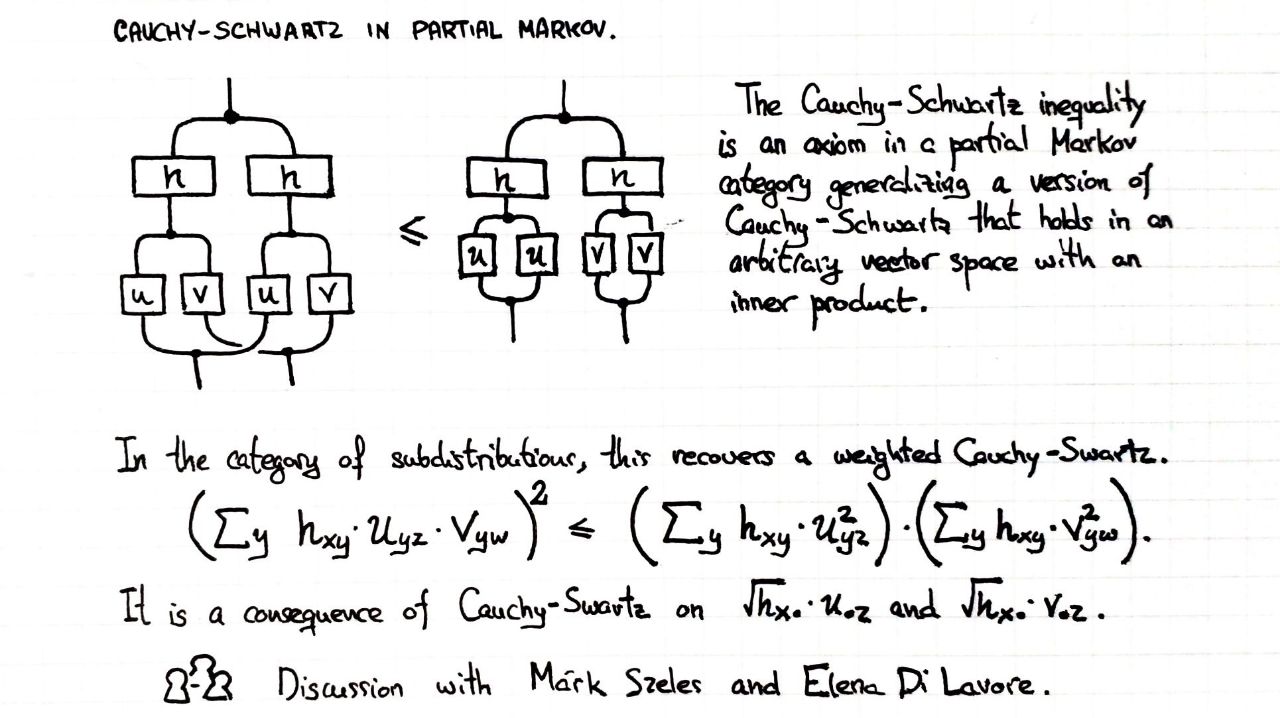 CAUCHY-SCHWARTZ IN PARTIAL MARKOV.
The Cauchy-Schwartz inequality
is an axiom in a partial Markov
category generalizing a version of
Cauchy-Schwartz that holds in an
arbitrary vector space with an
inner product.
h h ≤ h h
u u v v
u v u v
In the category of subdistributions, this recovers a weighted Cauchy-Swartz.
(∑y hxy · uyz · vyw)² ≤ (∑y hxy · u²yz) · (∑y hxy · v²yw).
It is a consequence of Cauchy-Swartz on √hx• · u•z and √hx• · v•z.
Discussion with Márk Szeles and Elena Di Lavore.